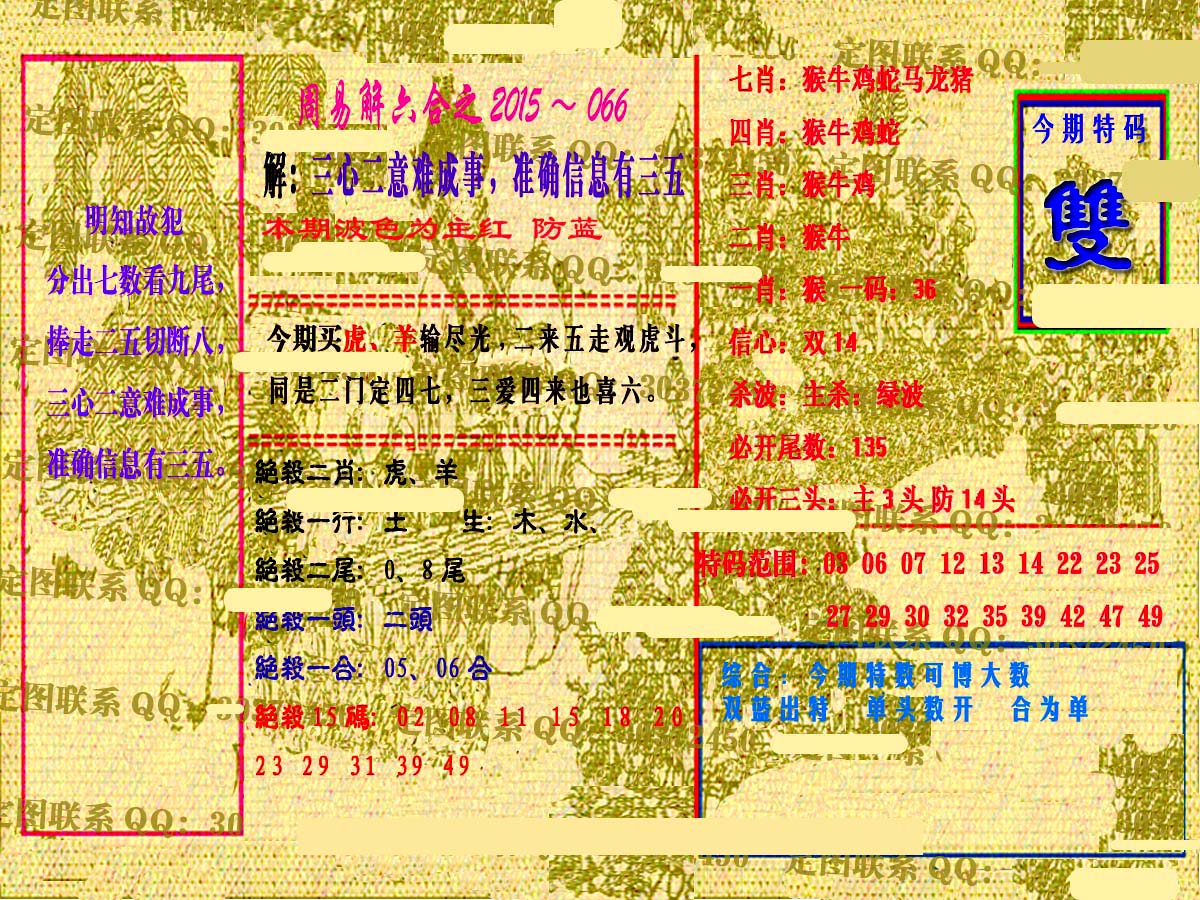 明知故犯
分出七数看九尾，
捧走二五切断八，
三心二意难成事，
准确信息有三五。
周易解六合之2015～066
解：三心二意难成事，准确信息有三五
本期波色为主红 防蓝
今期买虎、羊输尽光，二来五走观虎斗；
同是二门定四七，三爱四来也喜六。
絕殺二肖：虎、羊
絕殺一行：土 生：木、水、
絕殺二尾：0、8尾
絕殺一頭：二頭
絕殺一合：05、06合
絕殺15碼：02 08 11 15 18 20
23 29 31 39 49
七肖：猴牛鸡蛇马龙猪
四肖：猴牛鸡蛇
三肖：猴牛鸡
二肖：猴牛
一肖：猴 一码：36
信心：双14
杀波：主杀：绿波
必开尾数：135
必开三头：主3头防14头
今期特码
雙
特码范围：03 06 07 12 13 14 22 23 25
27 29 30 32 35 39 42 47 49
综合：今期特数可博大数
双蓝出特．单头数开 合为单
定图联系 QQ：